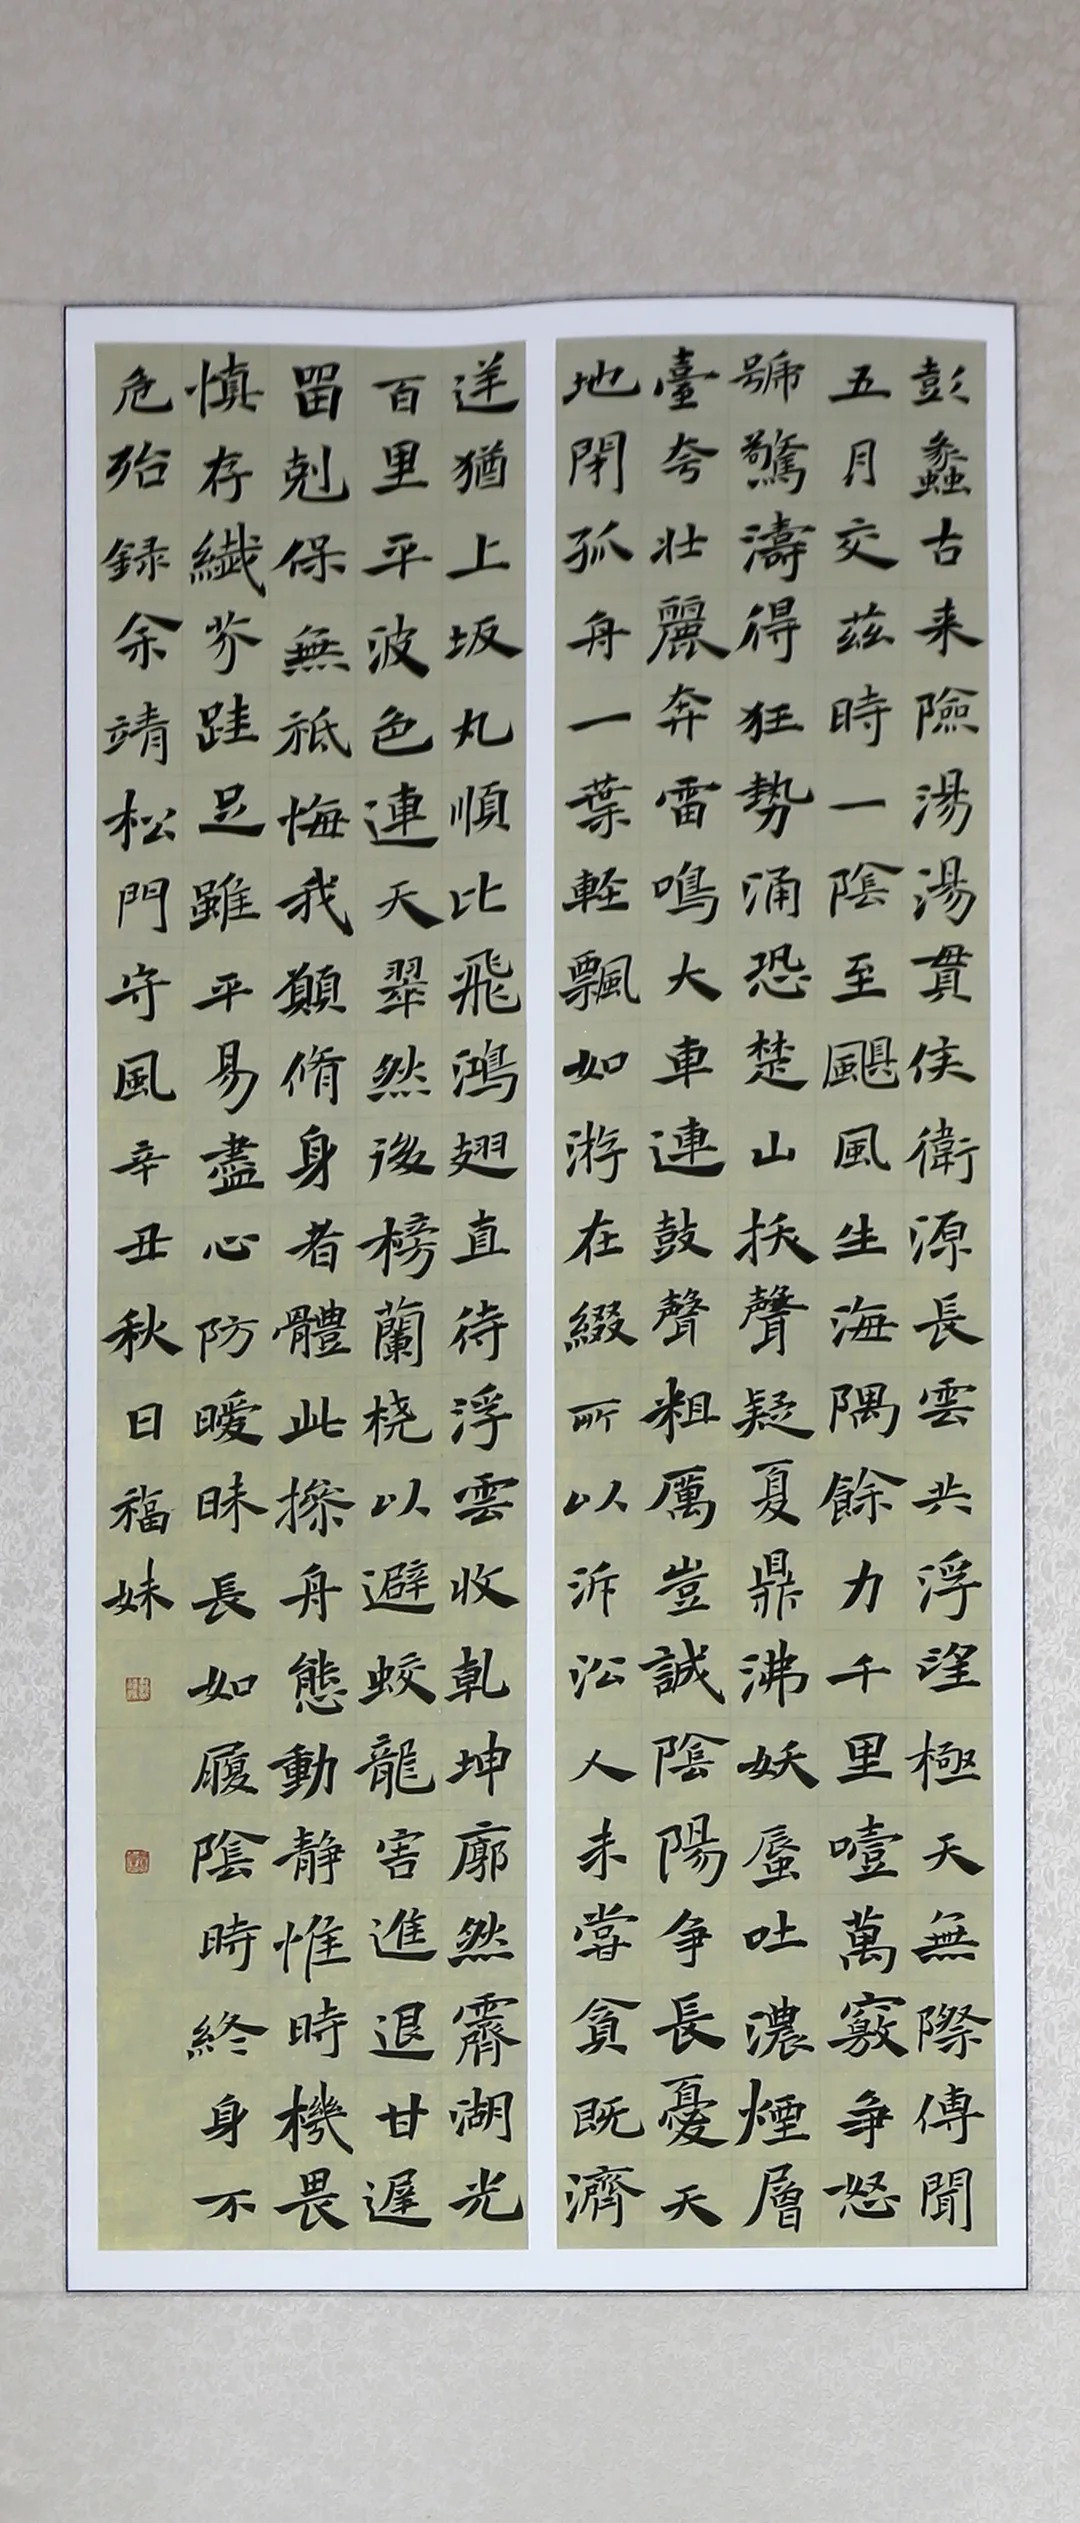 彭蠡古来險湯湯貫侯衛源長雲共浮望極天無際傳聞
五月交茲時一陰至颶風生海隅餘力千里噎萬竅争怒
號驚濤得狂勢涌恐楚山拔聲疑夏鼎沸妖蜃吐濃煙層
臺夸壯麗奔雷鳴大車連鼓聲粗厲豈誠陰陽争長憂天
地閉孤舟一葉輕飄如游在綴所以泝沿人未嘗貪既濟
逆猶上坂丸順比飛鴻翅直待浮雲收乹坤廓然霽湖光
百里平波色連天翠然後榜蘭桡以避蛟龍害進退甘遲
留剋保無祗悔我願脩身者體此操舟態動静惟時機畏
慎存纖芥跬足雖平易盡心防曖昧長如履陰時終身不
危殆録余靖松門守風辛丑秋日福妹